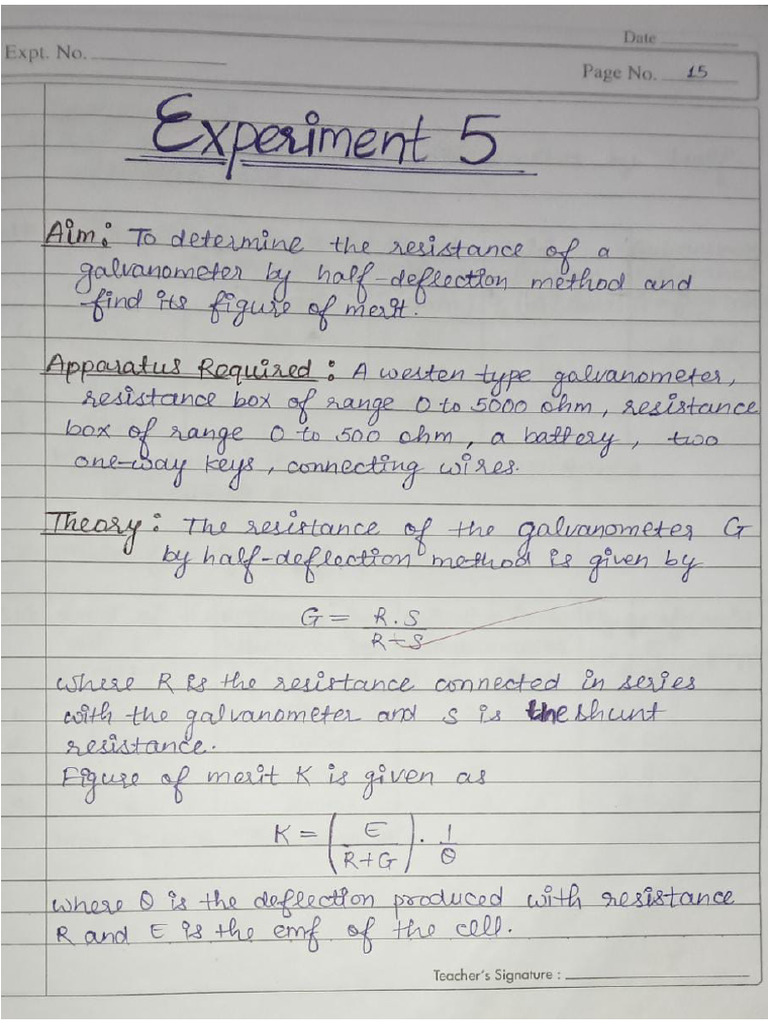 Date
Expt. No.
Page No. 15
Experiment 5
Aim: To determine the resistance of a
galvanometer by half-deflection method and
find its figure of merit.
Apparatus Required: A westen type galvanometer,
resistance box of range 0 to 5000 ohm, resistance
box of range 0 to 500 ohm, a battery, two
one-way keys, connecting wires.
Theory: The resistance of the galvanometer G
by half-deflection method is given by
G = R.S
R-S
where R is the resistance connected in series
with the galvanometer and S is the shunt
resistance.
Figure of merit K is given as
K = (E / R+G) . 1/θ
where θ is the deflection produced with resistance
R and E is the emf of the cell.
Teacher's Signature :